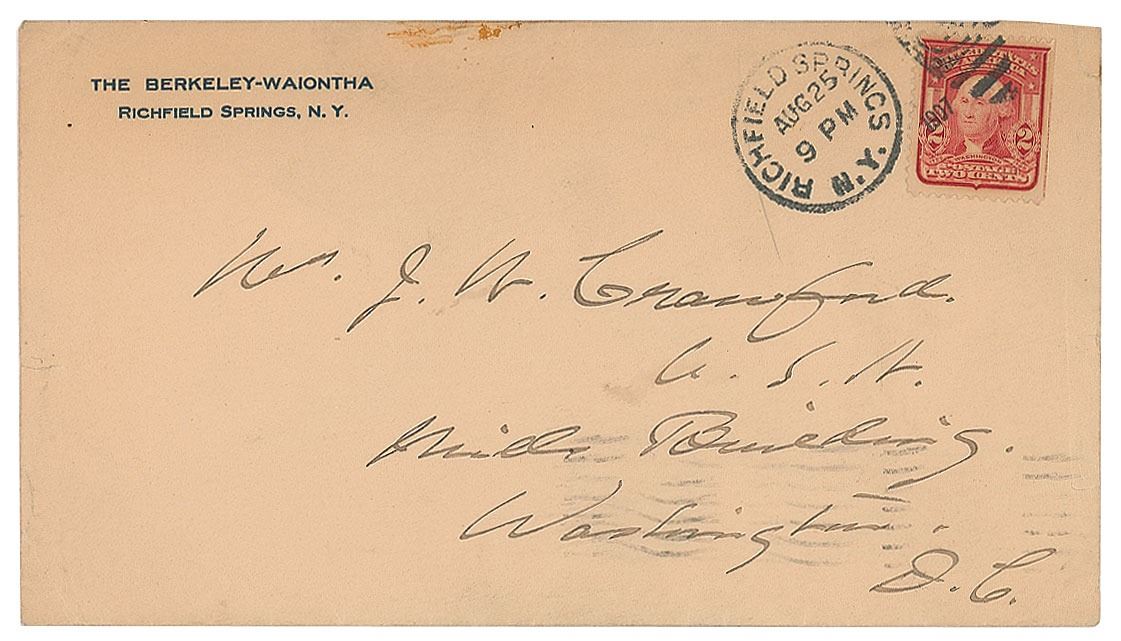 THE BERKELEY-WAIONTHA
RICHFIELD SPRINGS, N. Y.
RICHFIELD SPRINGS N.Y.
AUG 25
9 PM
1907
UNITED STATES
OF AMERICA
2 WASHINGTON 2
TWO CENTS
Mr. J. W. Crawford.
U. S. N.
Mills Building.
Washington.
D. C.